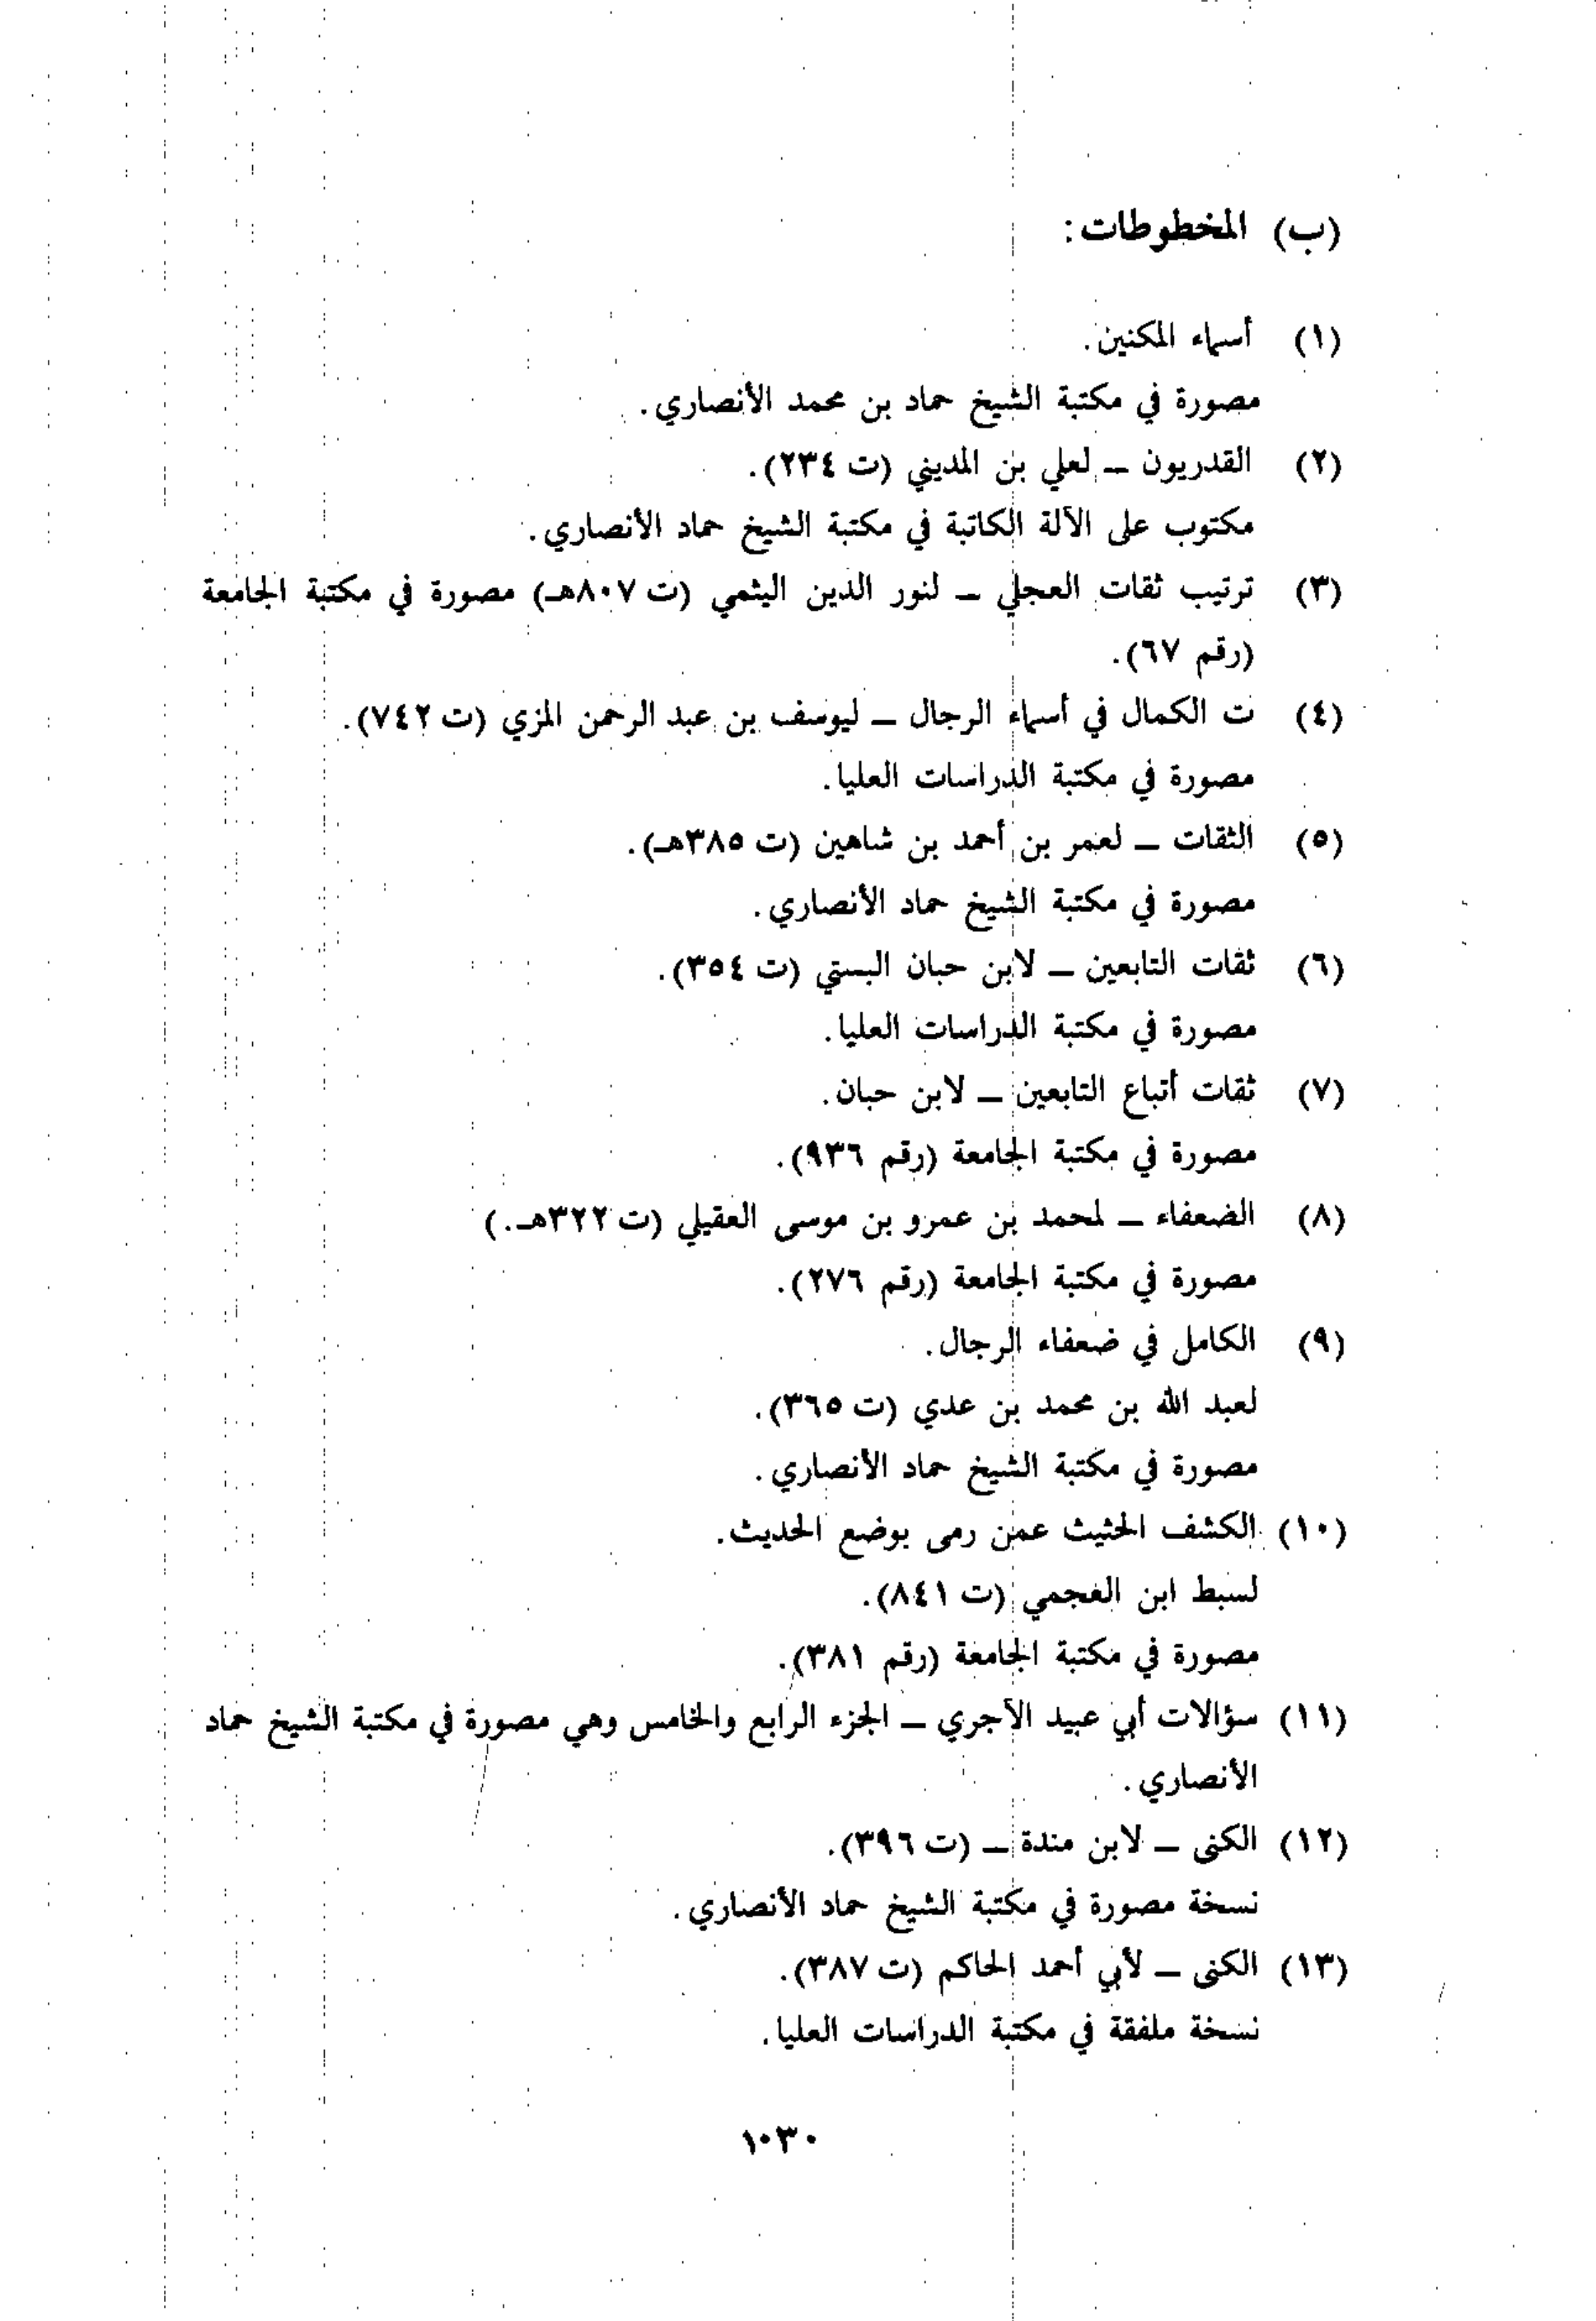 (ب) المخطوطات:
(١) أسماء المكنين.
مصورة في مكتبة الشيخ حماد بن محمد الأنصاري.
(٢) القدريون – لعلي بن المديني (ت ٢٣٤).
مكتوب على الآلة الكاتبة في مكتبة الشيخ حماد الأنصاري.
(٣) ترتيب ثقات العجلي – لنور الدين اليثمي (ت ٨٠٧هـ) مصورة في مكتبة الجامعة
(رقم ٦٧).
(٤) ت الكمال في أسماء الرجال – ليوسف بن عبد الرحمن المزي (ت ٧٤٢).
مصورة في مكتبة الدراسات العليا.
(٥) الثقات – لعمر بن أحمد بن شاهين (ت ٣٨٥هـ).
مصورة في مكتبة الشيخ حماد الأنصاري.
(٦) ثقات التابعين – لابن حبان البستي (ت ٣٥٤).
مصورة في مكتبة الدراسات العليا.
(٧) ثقات أتباع التابعين – لابن حبان.
مصورة في مكتبة الجامعة (رقم ٩٣٦).
(٨) الضعفاء – لمحمد بن عمرو بن موسى العقيلي (ت ٣٢٢هـ.)
مصورة في مكتبة الجامعة (رقم ٢٧٦).
(٩) الكامل في ضعفاء الرجال.
لعبد الله بن محمد بن عدي (ت ٣٦٥).
مصورة في مكتبة الشيخ حماد الأنصاري.
(١٠) الكشف الحثيث عمن رمى بوضع الحديث.
لسبط ابن العجمي (ت ٨٤١).
مصورة في مكتبة الجامعة (رقم ٣٨١).
(١١) سؤالات أبي عبيد الآجري – الجزء الرابع والخامس وهي مصورة في مكتبة الشيخ حماد
الأنصاري.
(١٢) الكنى – لابن مندة – (ت ٣٩٦).
نسخة مصورة في مكتبة الشيخ حماد الأنصاري.
(١٣) الكنى – لأبي أحمد الحاكم (ت ٣٨٧).
نسخة ملفقة في مكتبة الدراسات العليا.
١٠٣٠